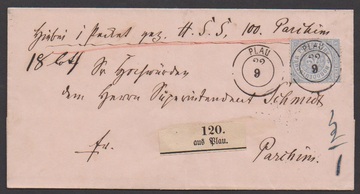 Hiebei 1 Packet gez. H. S. S. 100. Parchim
PLAU
22
9
PLAU
22
9
Sr Hochwürden
dem Herrn Superintendent Schmidt
120.
aus Plau.
fr.
Parchim.